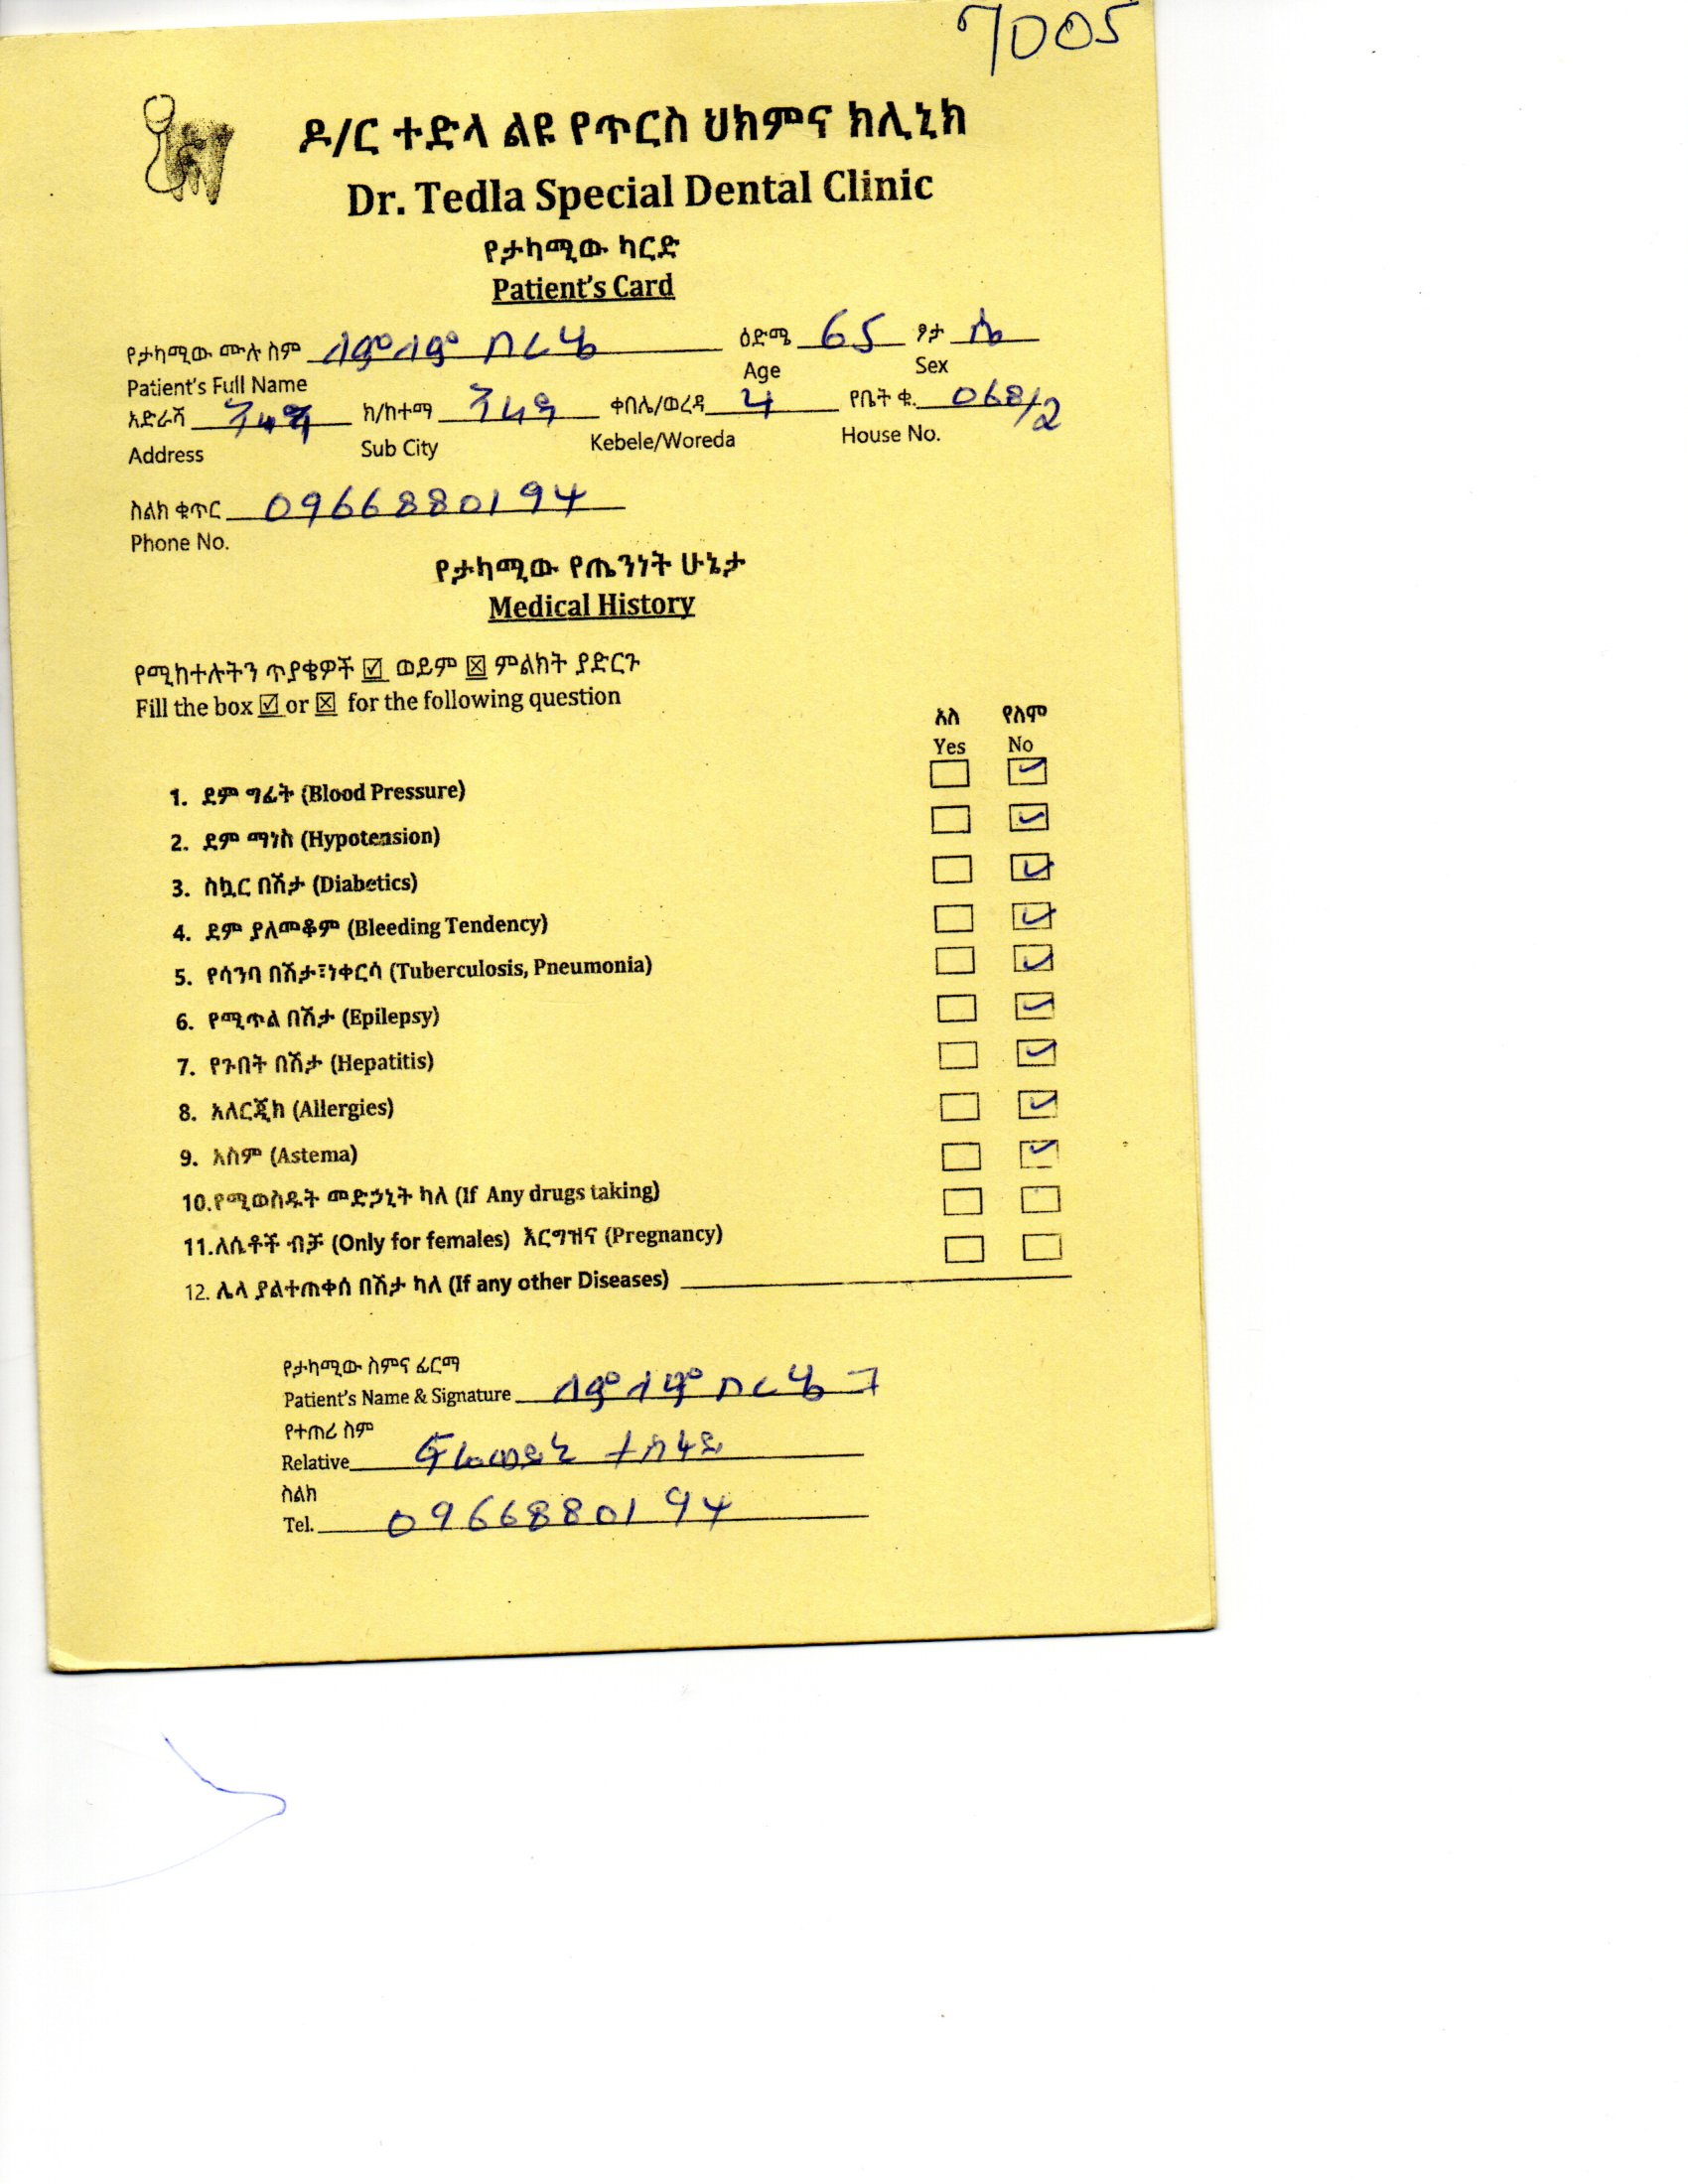 7005
ዶ/ር ተድላ ልዩ የጥርስ ህክምና ክሊኒክ
Dr. Tedla Special Dental Clinic
የታካሚው ካርድ
Patient's Card
የታካሚው ሙሉ ስም ለምለም በርሄ ዕድሜ 65 ፆታ ሴ
Patient's Full Name Age Sex
አድራሻ ክ/ከተማ ቀበሌ/ወረዳ 4 የቤት ቁ. 068/2
Address Sub City Kebele/Woreda House No.
ስልክ ቁጥር 0966880194
Phone No.
የታካሚው የጤንነት ሁኔታ
Medical History
የሚከተሉትን ጥያቄዎች ☑ ወይም ☒ ምልክት ያድርጉ
Fill the box ☑ or ☒ for the following question
አለ የለም
Yes No
1. ደም ግፊት (Blood Pressure)
2. ደም ማነስ (Hypotension)
3. ስኳር በሽታ (Diabetics)
4. ደም ያለመቆም (Bleeding Tendency)
5. የሳንባ በሽታ፣ነቀርሳ (Tuberculosis, Pneumonia)
6. የሚጥል በሽታ (Epilepsy)
7. የጉበት በሽታ (Hepatitis)
8. አለርጂክ (Allergies)
9. አስም (Astema)
10.የሚወስዱት መድኃኒት ካለ (If Any drugs taking)
11.ለሴቶች ብቻ (Only for females) እርግዝና (Pregnancy)
12. ሌላ ያልተጠቀሰ በሽታ ካለ (If any other Diseases)
የታካሚው ስምና ፊርማ
Patient's Name & Signature ለምለም በርሄ
የተጠሪ ስም
Relative ፍሬወይኒ ተስፋይ
ስልክ
Tel. 0966880194